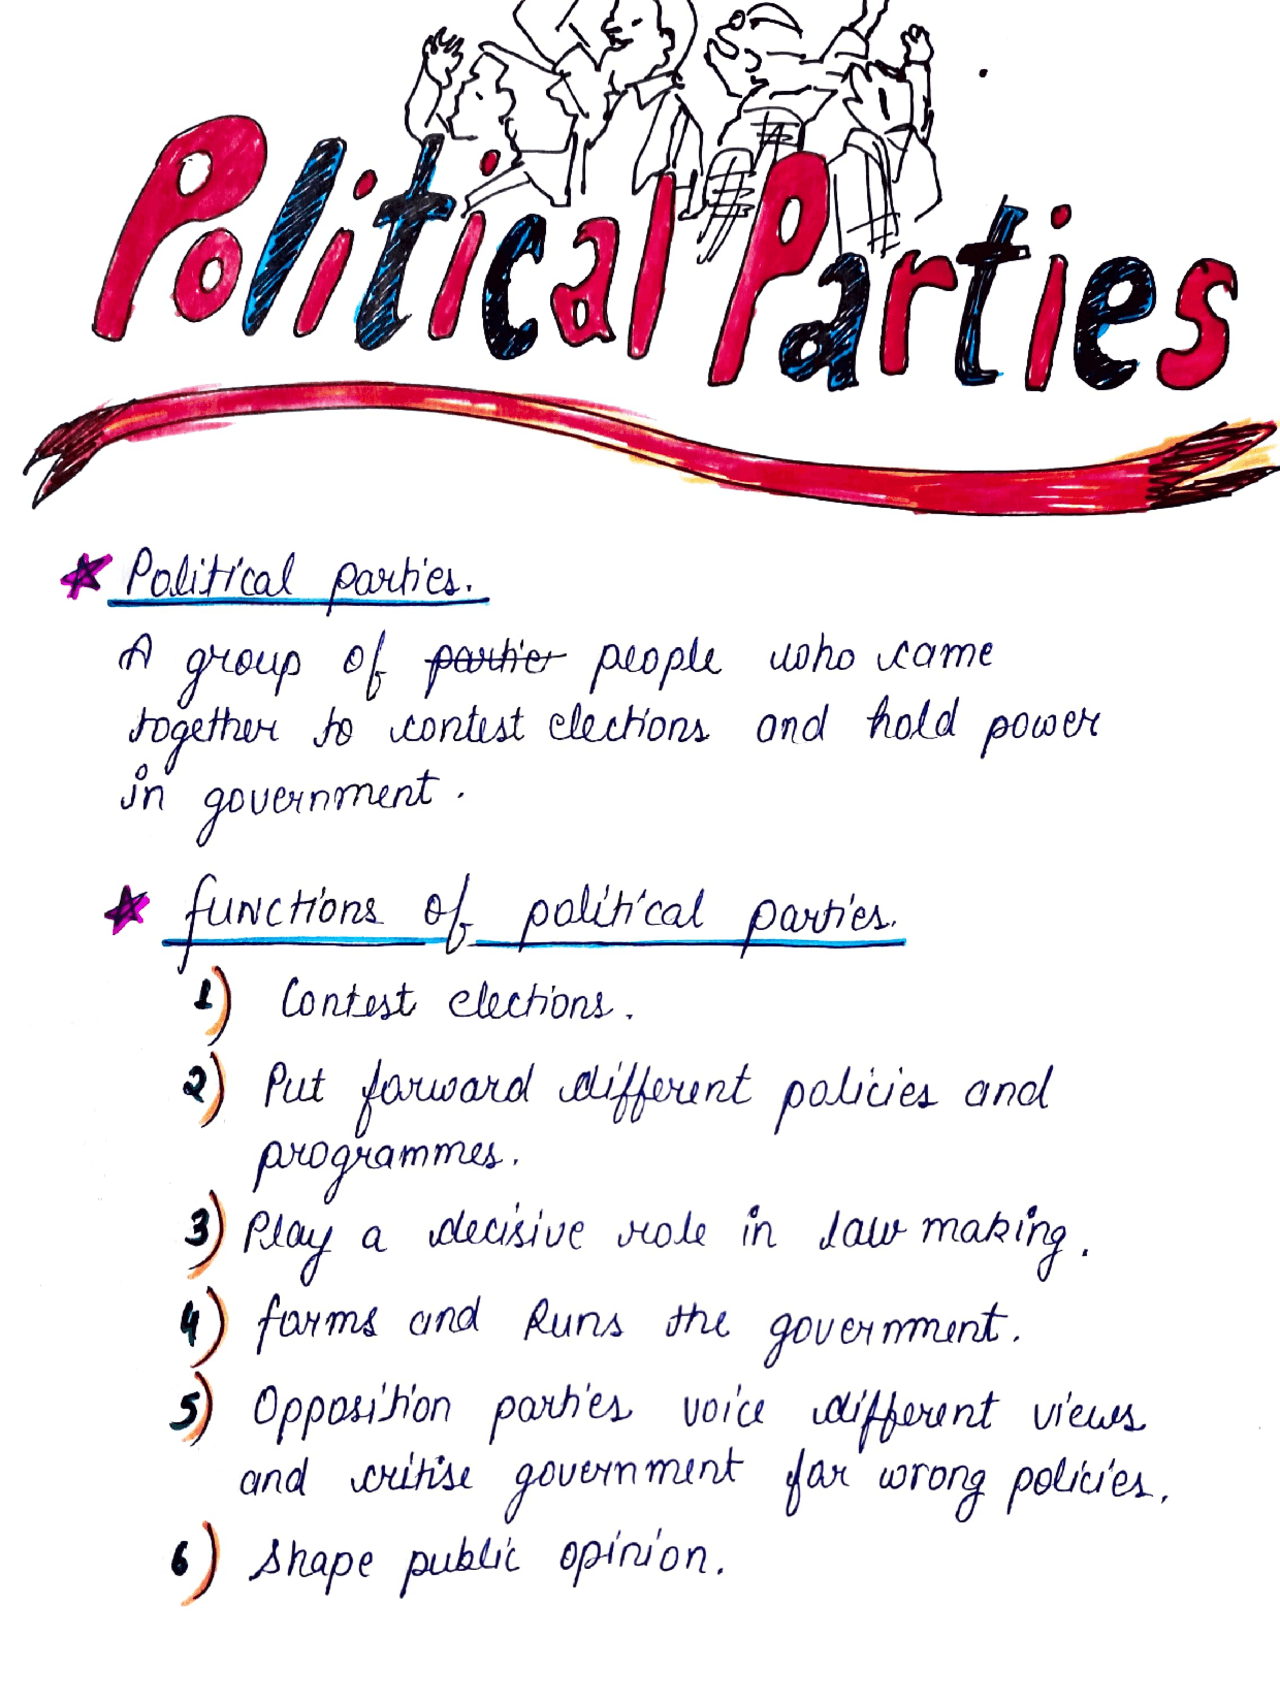 Political Parties
Political parties.
A group of partier people who came
together to contest elections and hold power
in government.
functions of political parties.
1) Contest elections.
2) Put forward different policies and
programmes.
3) Play a decisive role in law making.
4) forms and Runs the government.
5) Opposition parties voice different views
and critise government for wrong policies.
6) Shape public opinion.